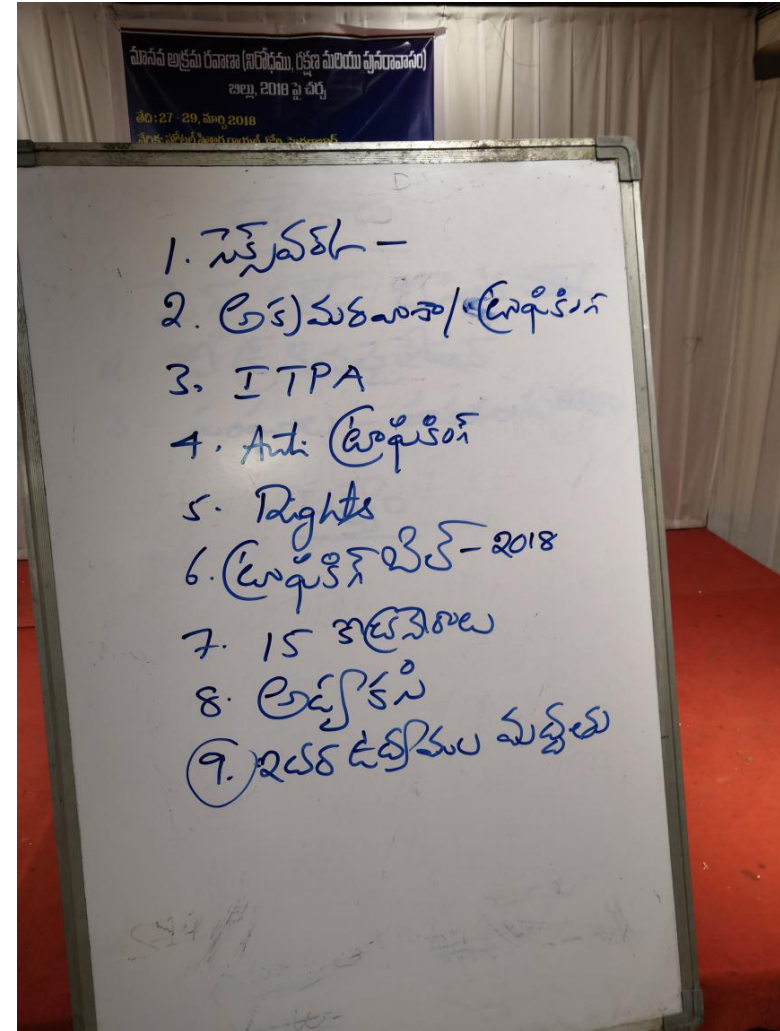 మానవ అక్రమ రవాణా (నిరోధము, రక్షణ మరియు పునరావాసం)
బిల్లు, 2018 పై చర్చ
తేది: 27-29, మార్చి 2018
1. సెక్స్‌వర్క్ -
2. అక్రమరవాణా/ ట్రాఫికింగ్
3. ITPA
4. Anti ట్రాఫికింగ్
5. Rights
6. ట్రాఫికింగ్ బిల్ - 2018
7. 15
8. అడ్వకసి
9. ఇతర ఉద్యమల మద్దతు